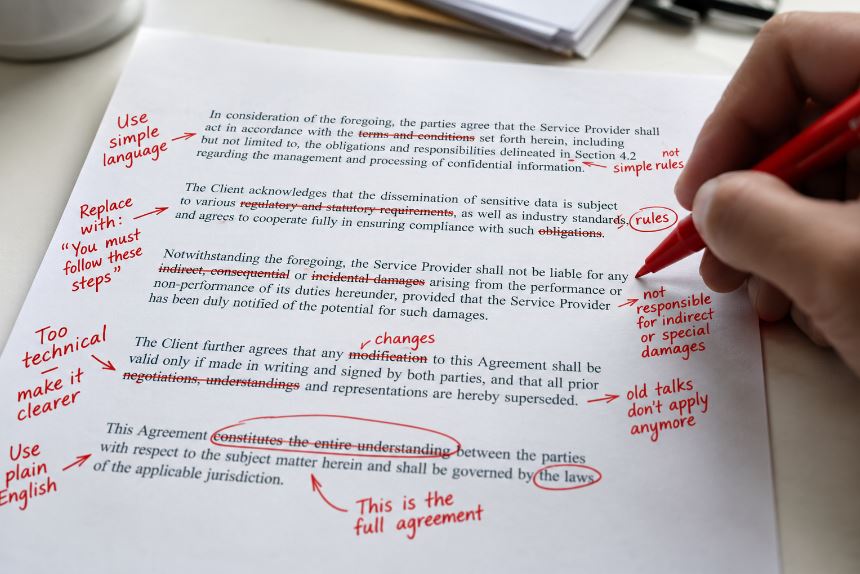 Use
simple
language
In consideration of the foregoing, the parties agree that the Service Provider shall
act in accordance with the terms and conditions set forth herein, including
but not limited to, the obligations and responsibilities delineated in Section 4.2
regarding the management and processing of confidential information.
not
simple rules
Replace
with:
"You must
follow these
steps"
The Client acknowledges that the dissemination of sensitive data is subject
to various regulatory and statutory requirements, as well as industry standards,
and agrees to cooperate fully in ensuring compliance with such obligations.
rules
Notwithstanding the foregoing, the Service Provider shall not be liable for any
indirect, consequential or incidental damages arising from the performance or
non-performance of its duties hereunder, provided that the Service Provider
has been duly notified of the potential for such damages.
not
responsible
for indirect
or special
damages
Too
technical
—
make it
clearer
changes
The Client further agrees that any modification to this Agreement shall be
valid only if made in writing and signed by both parties, and that all prior
negotiations, understandings and representations are hereby superseded.
old talks
don't apply
anymore
Use
plain
English
This Agreement constitutes the entire understanding between the parties
with respect to the subject matter herein and shall be governed by the laws
of the applicable jurisdiction.
This is the
full agreement